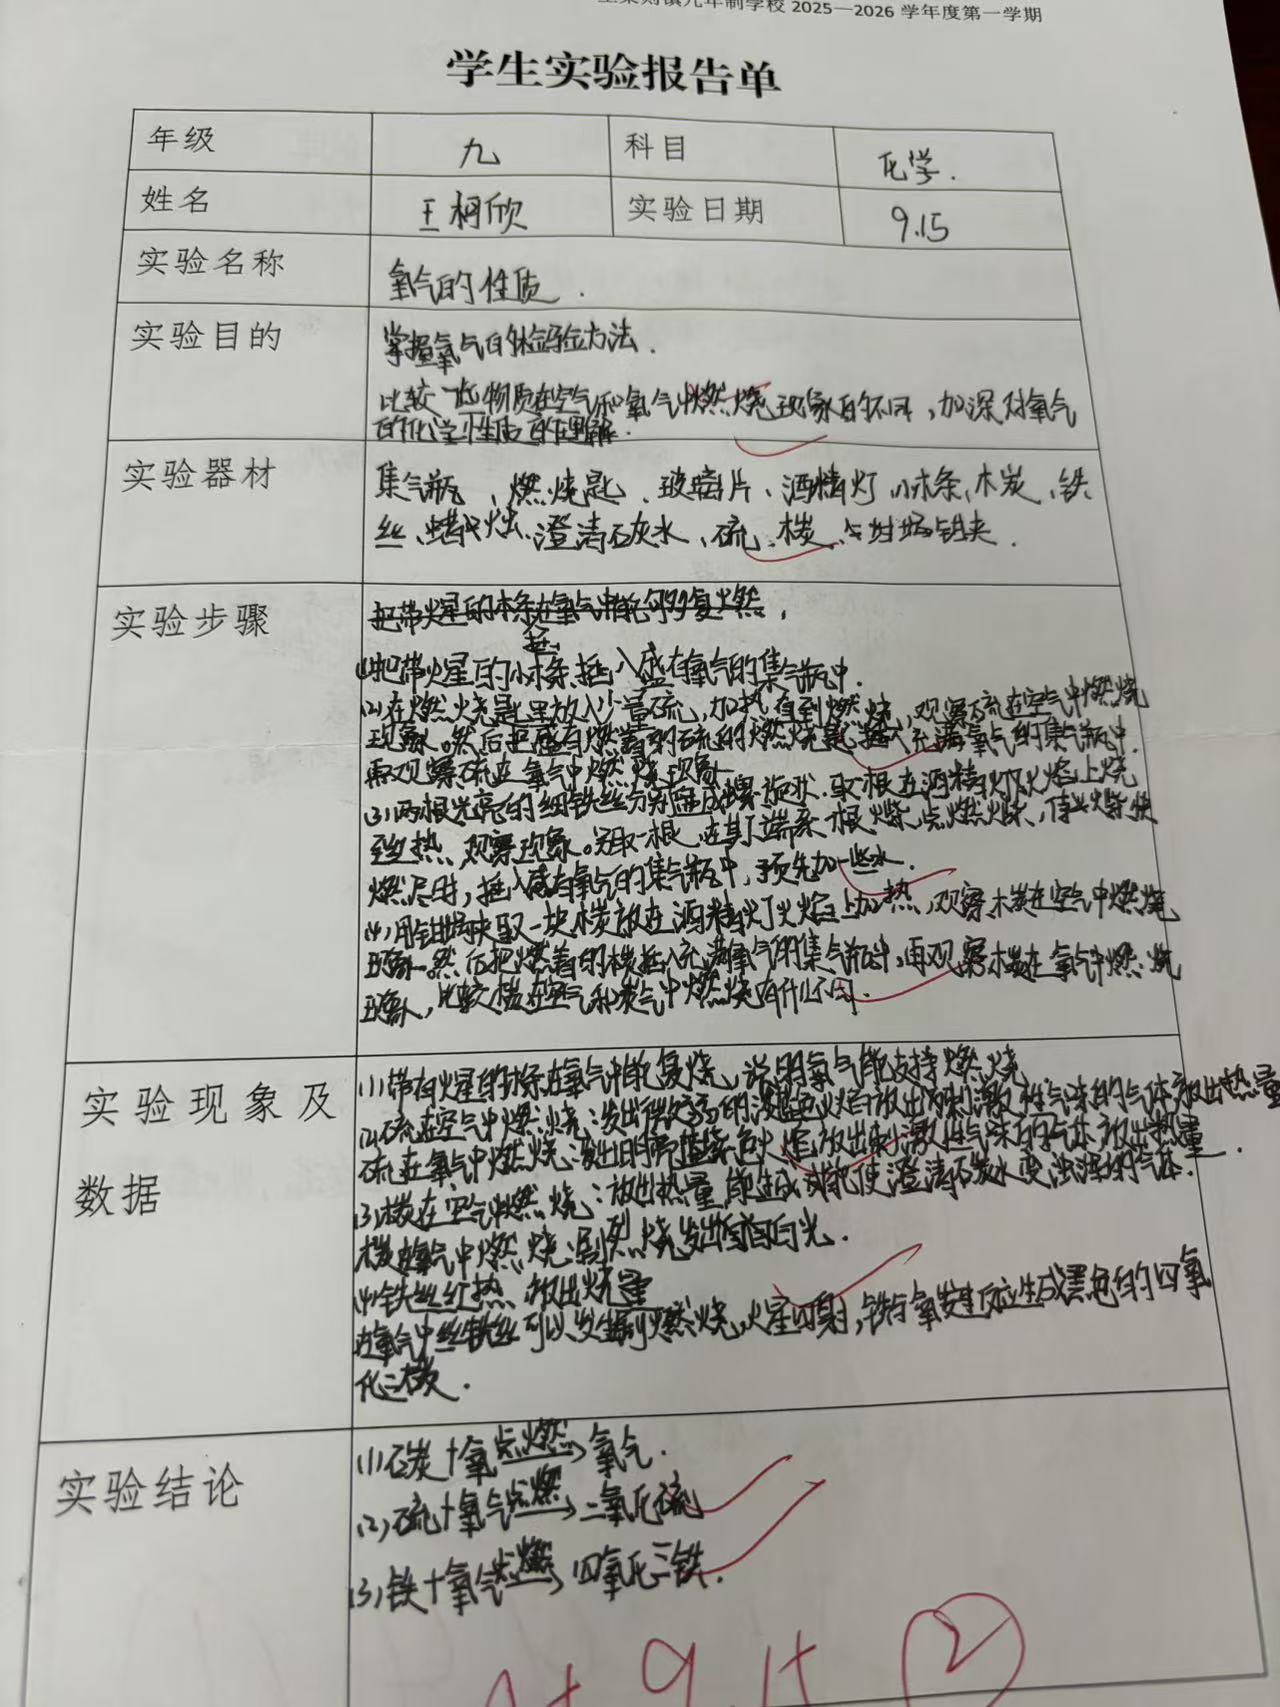 九年制学校 2025—2026 学年度第一学期
学生实验报告单
年级 九 科目 化学.
姓名 王柯欣 实验日期 9.15
实验名称 氧气的性质.
实验目的 掌握氧气的检验方法.
比较一些物质在空气和氧气中燃烧现象的不同,加深对氧气
的化学性质的理解.
实验器材 集气瓶、燃烧匙、玻璃片、酒精灯、小木条、木炭、铁
丝、蜡烛、澄清石灰水、硫、木炭、坩埚钳夹.
实验步骤 把带火星的木条在氧气中能够复燃,
(1)把带火星的小木条插入盛有氧气的集气瓶中.
(2)在燃烧匙里放入少量硫,加热直到燃烧,观察硫在空气中燃烧
现象.然后把盛有燃着的硫的燃烧匙插入充满氧气的集气瓶中.
再观察硫在氧气中燃烧现象
(3)两根光亮的细铁丝分别盘成螺旋状.取一根在酒精灯火焰上烧
至红热,观察现象。另取一根,在其下端系一根火柴,点燃火柴,待火柴快
燃尽时,插入盛有氧气的集气瓶中,预先加一些水.
(4)用坩埚夹取一块木炭放在酒精灯火焰上加热,观察木炭在空气中燃烧
现象.然后把燃着的木炭插入充满氧气的集气瓶中,再观察木炭在氧气中燃烧
现象,比较木炭在空气和氧气中燃烧有什么不同.
实验现象及
数据
(1)带有火星的木条在氧气中能复烧,说明氧气能支持燃烧
(2)硫在空气中燃烧:发出微弱的淡蓝色火焰放出有刺激性气味的气体放出热量
硫在氧气中燃烧:发出明亮蓝紫色火焰放出刺激性气味的气体放出热量.
(3)木炭在空气中燃烧:放出热量,能生成能使澄清石灰水变浑浊的气体.
木炭在氧气中燃烧:剧烈烧发出白光.
(4)铁丝红热 放出烧量
在氧气中铁丝可以发生剧烈燃烧,火星四射,铁与氧发生反应生成黑色的四氧
化三
实验结论 (1)石炭+氧 点燃→ 氧气.
(2)硫+氧气 点燃→ 二氧化硫
(3)铁+氧气 点燃→ 四氧化三铁.
9.15 ②